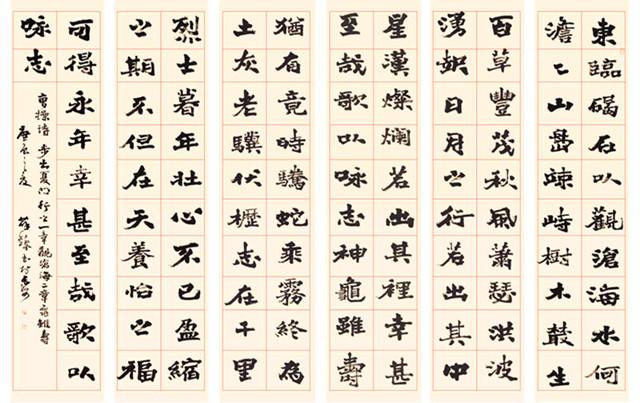 東臨碣石以觀滄海水何
澹〻山島竦峙樹木叢生
百草豐茂秋風蕭瑟洪波
湧起日月之行若出其中
星漢燦爛若出其裡幸甚
至哉歌以咏志神龜雖壽
猶有竟時騰蛇乘霧終為
土灰老驥伏櫪志在千里
烈士暮年壯心不已盈縮
之期不但在天養怡之福
可得永年幸甚至哉歌以
咏志
曹操詩步出夏門行之一章觀滄海二章龜雖壽